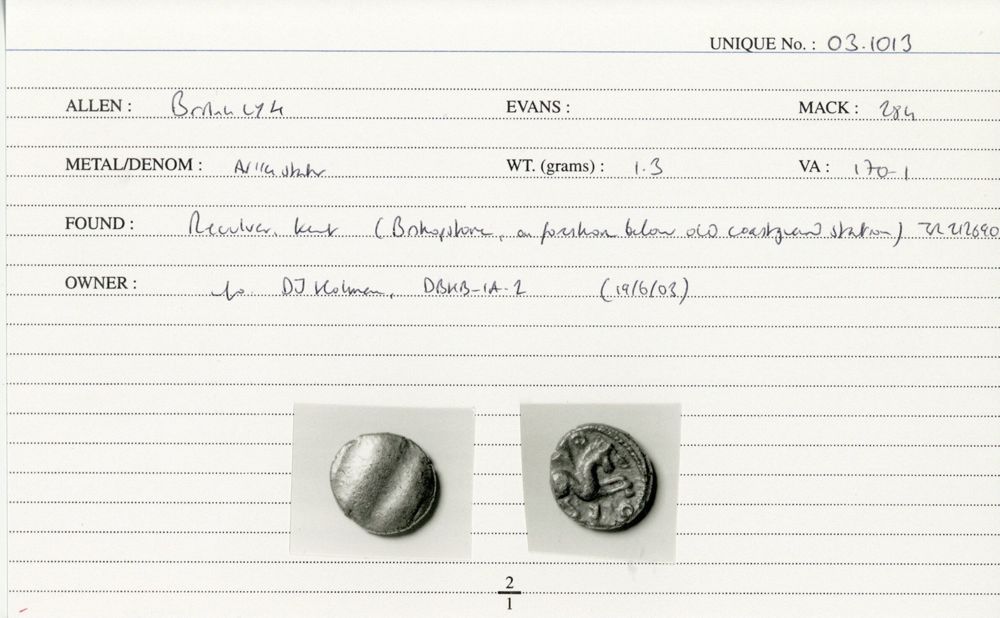 UNIQUE No. : 03.1013
ALLEN : British LY4 EVANS : MACK : 284
METAL/DENOM : AV 1/4 stater WT. (grams) : 1.3 VA : 170-1
FOUND : Reculver, Kent (Bishopstone, on foreshore below old coastguard station) TR 212690
OWNER : DJ Holman, DBHB-IA-2 (19/6/03)
2
1